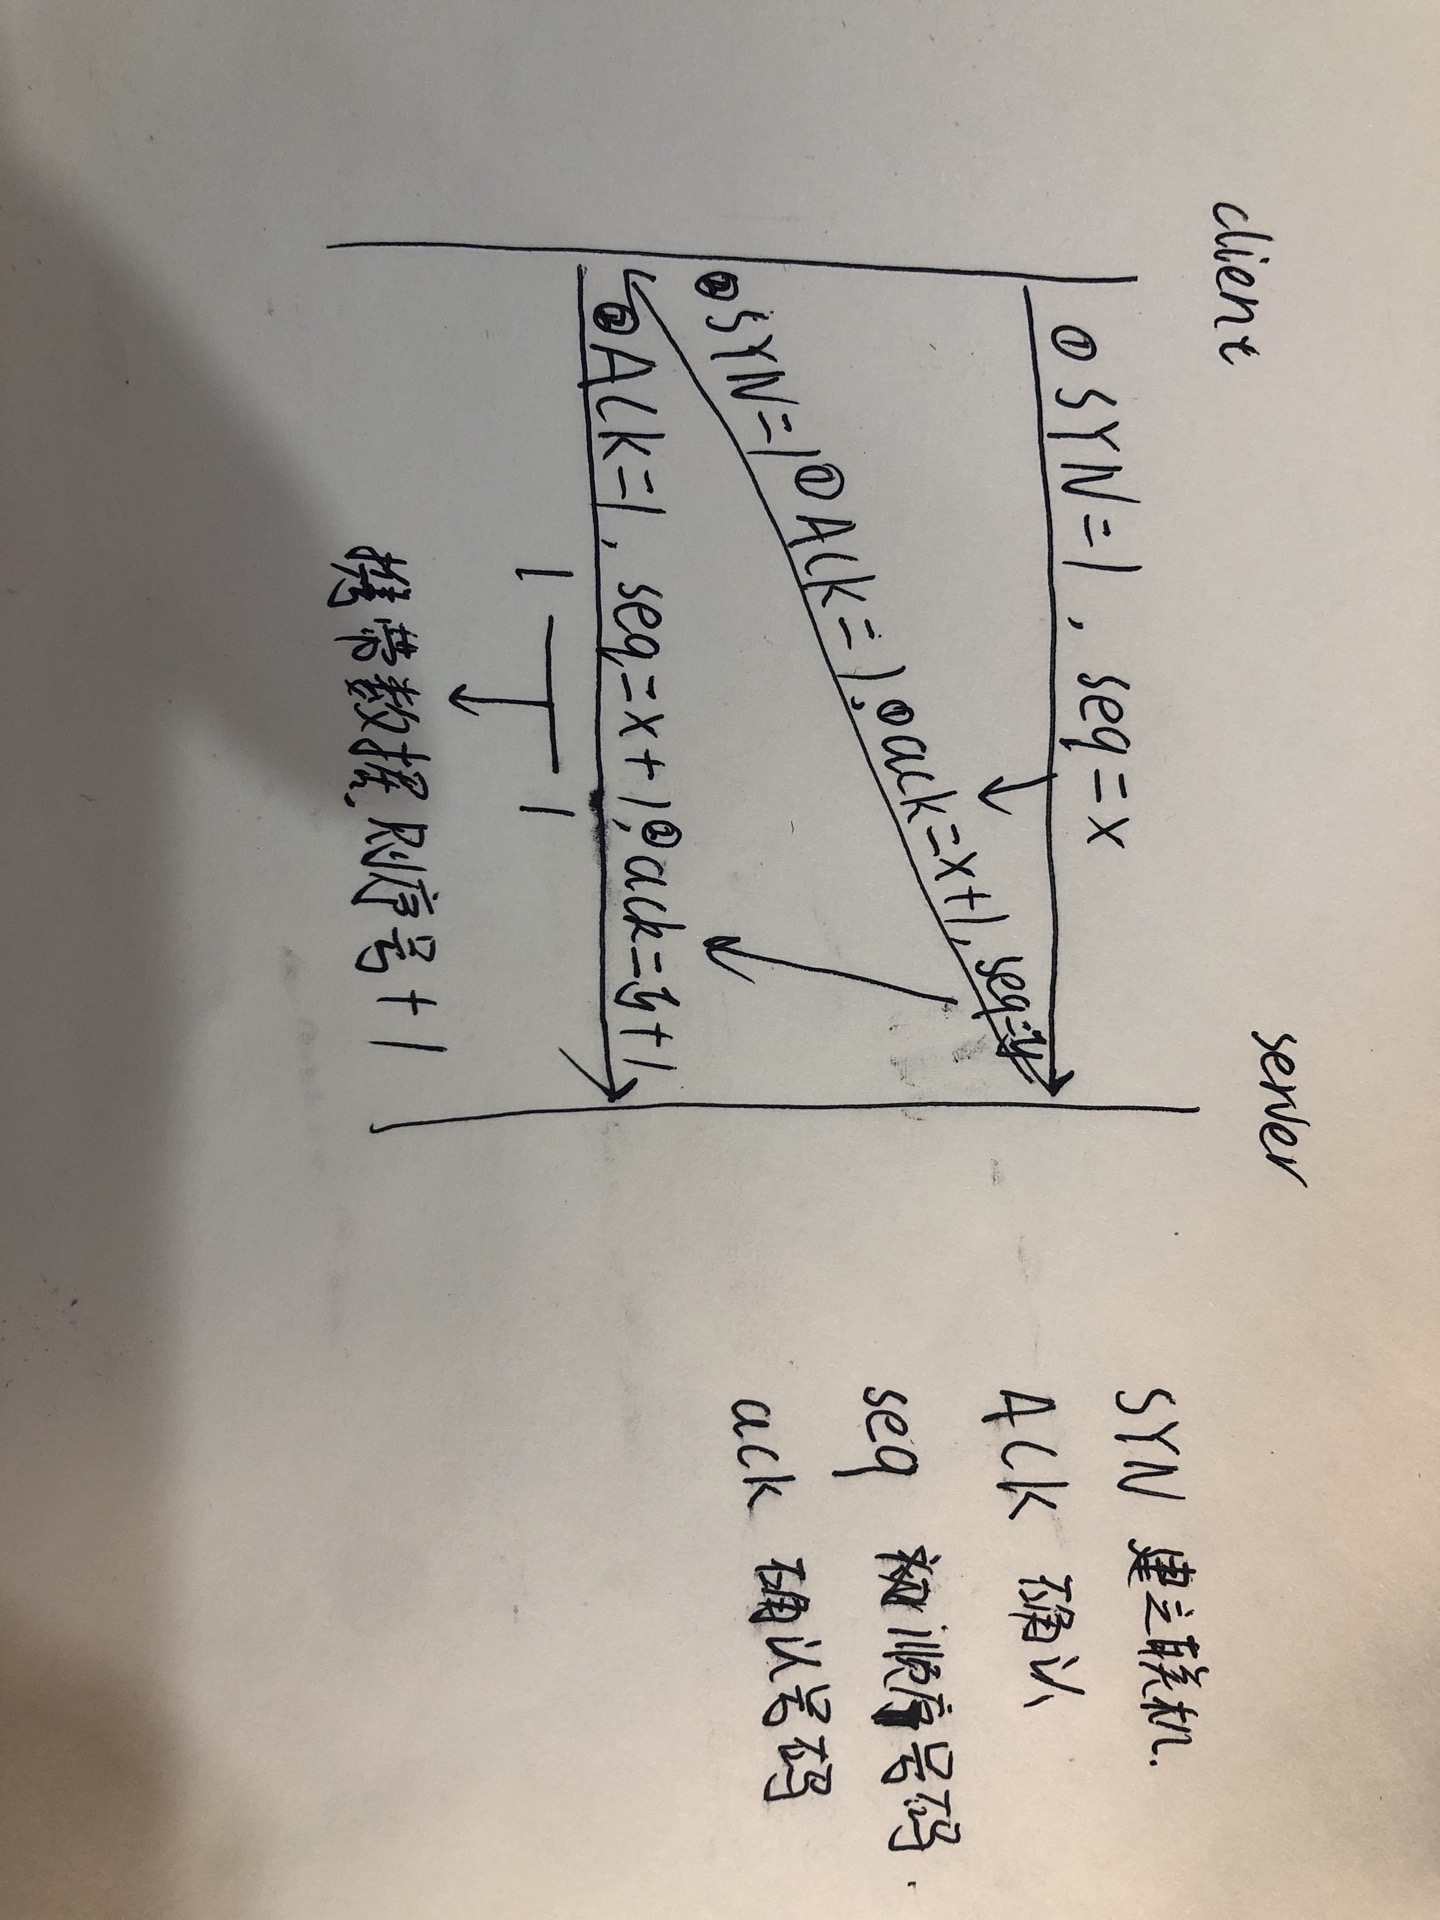 client
server
①SYN=1, seq=x
②SYN=1①ACK=1,①ack=x+1, seq=y
②ACK=1, seq=x+1,②ack=y+1
携带数据,则序号+1
SYN 建立联机.
ACK 确认
seq 顺序号码.
ack 确认号码